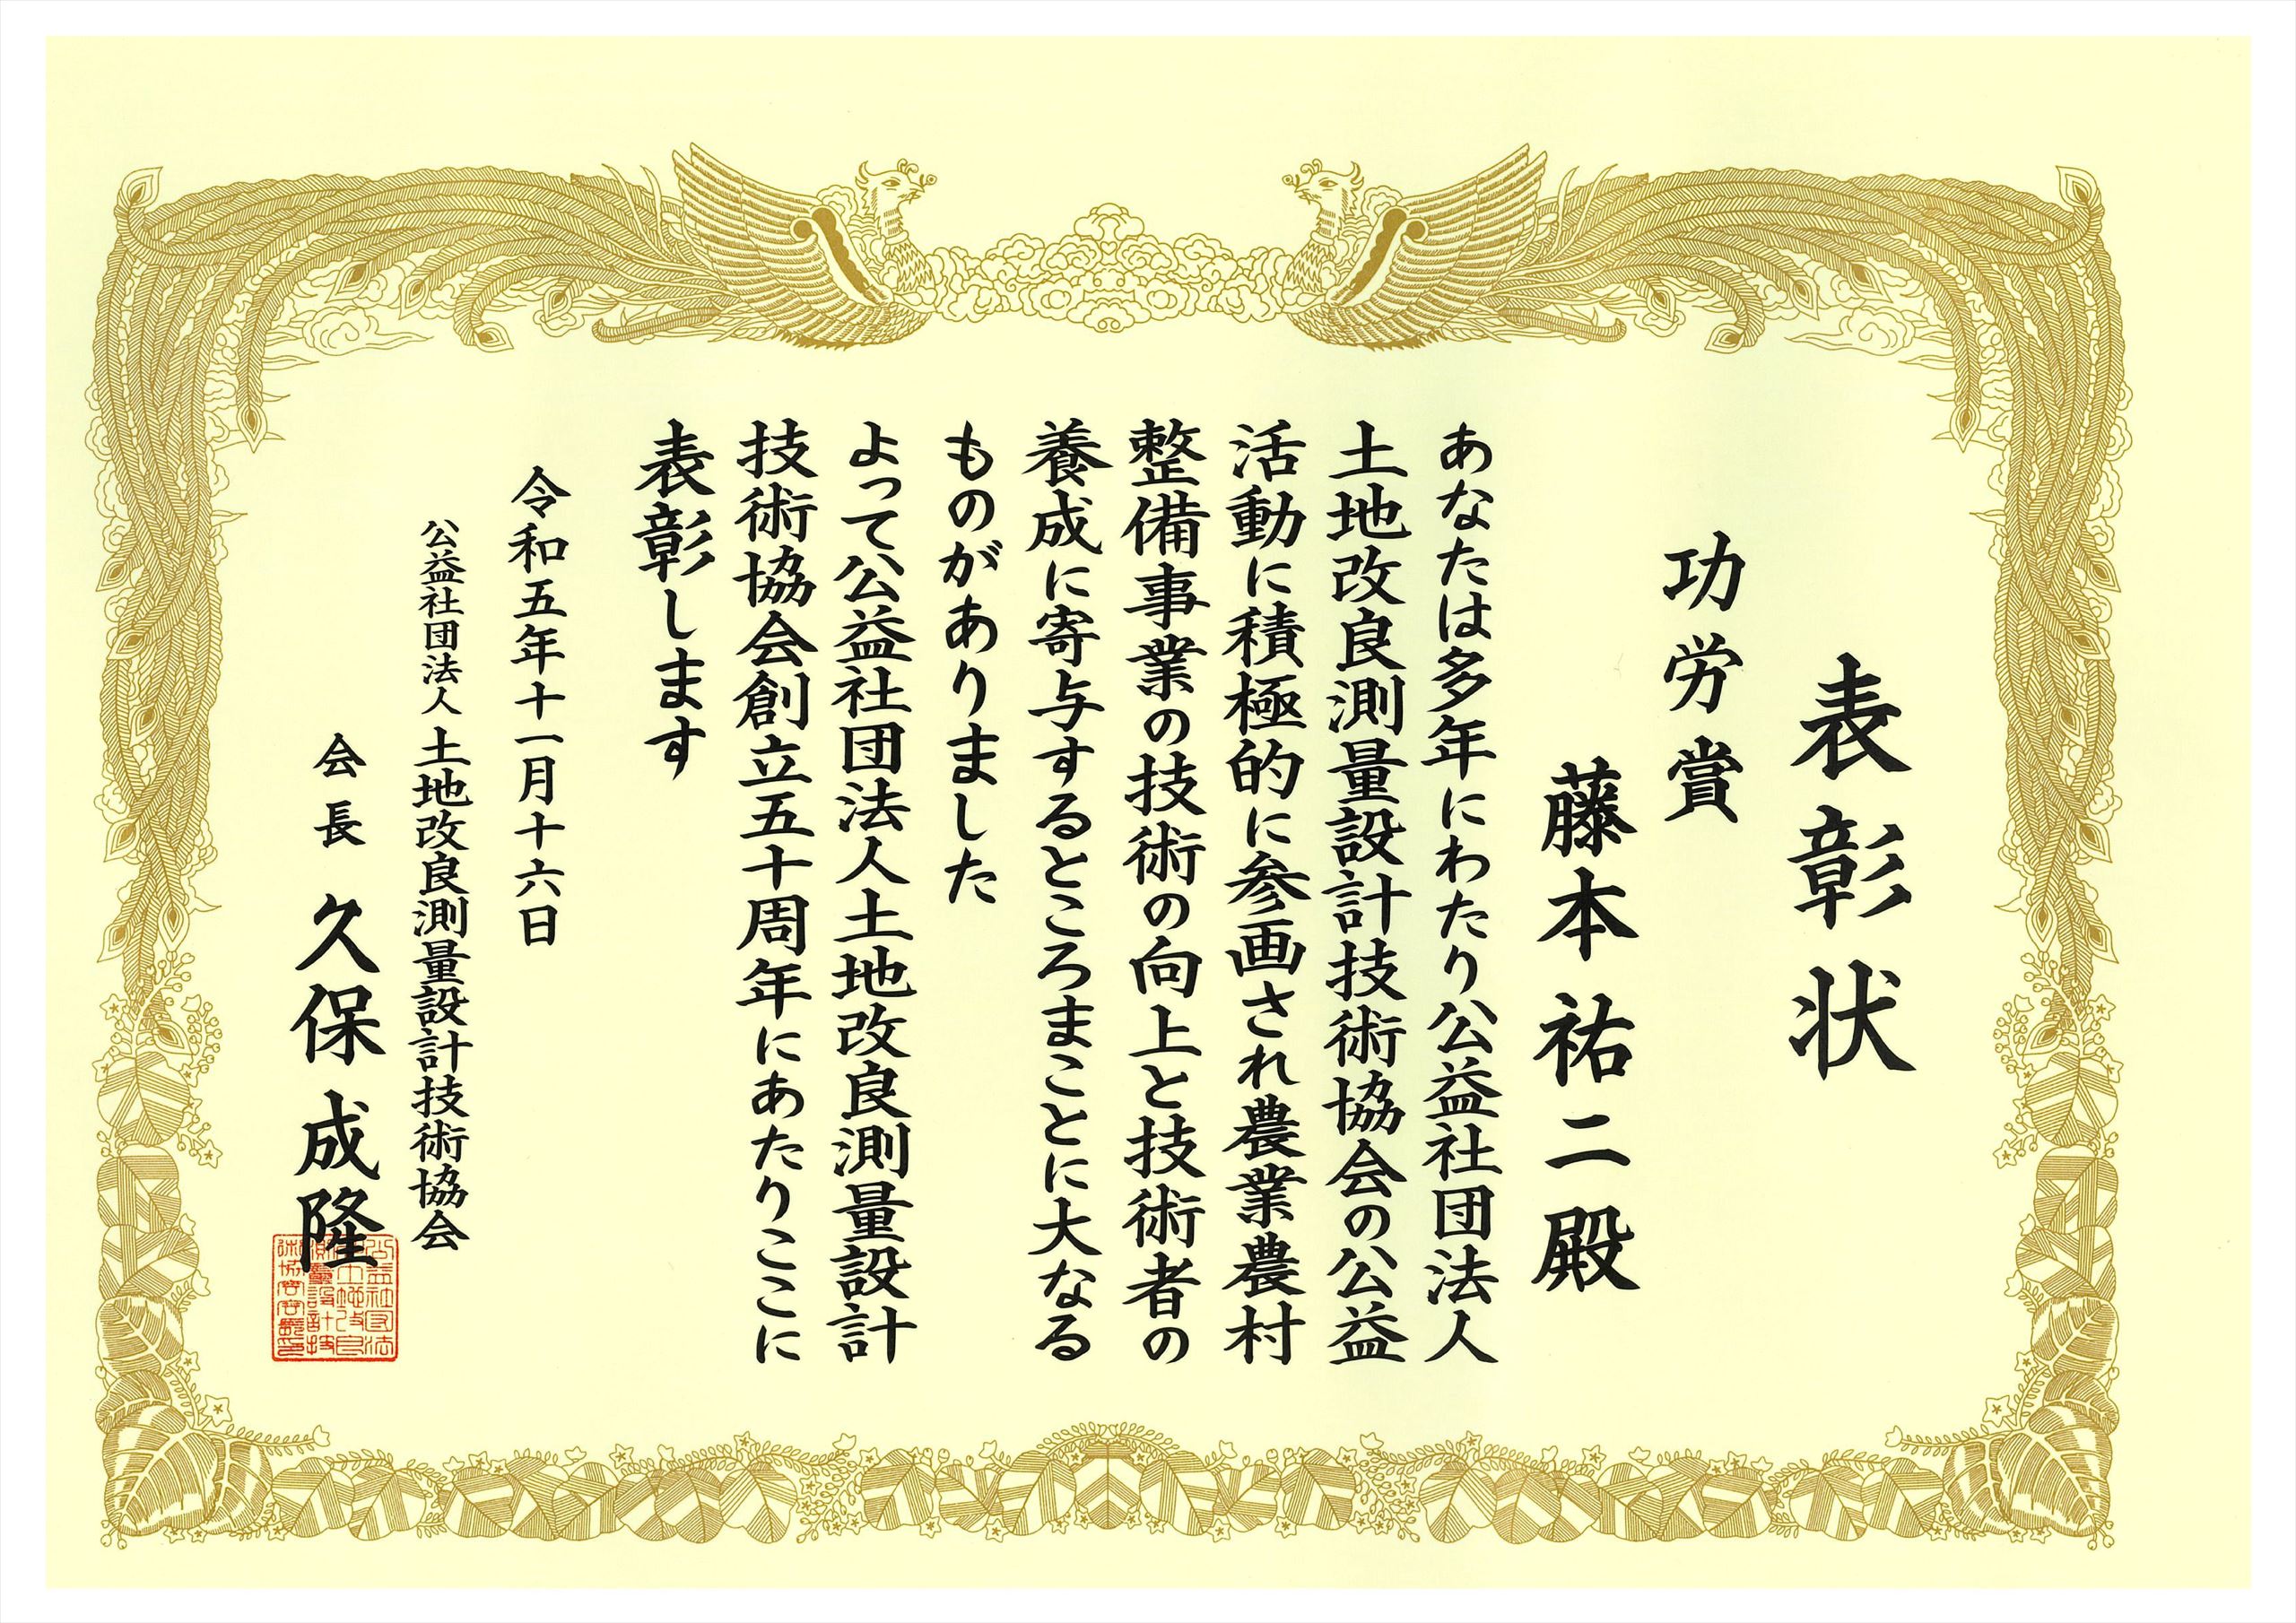 表彰状
功労賞
藤本祐二殿
あなたは多年にわたり公益社団法人
土地改良測量設計技術協会の公益
活動に積極的に参画され農業農村
整備事業の技術の向上と技術者の
養成に寄与するところまことに大なる
ものがありました
よって公益社団法人土地改良測量設計
技術協会創立五十周年にあたりここに
表彰します
令和五年十一月十六日
公益社団法人 土地改良測量設計技術協会
会長 久保成隆